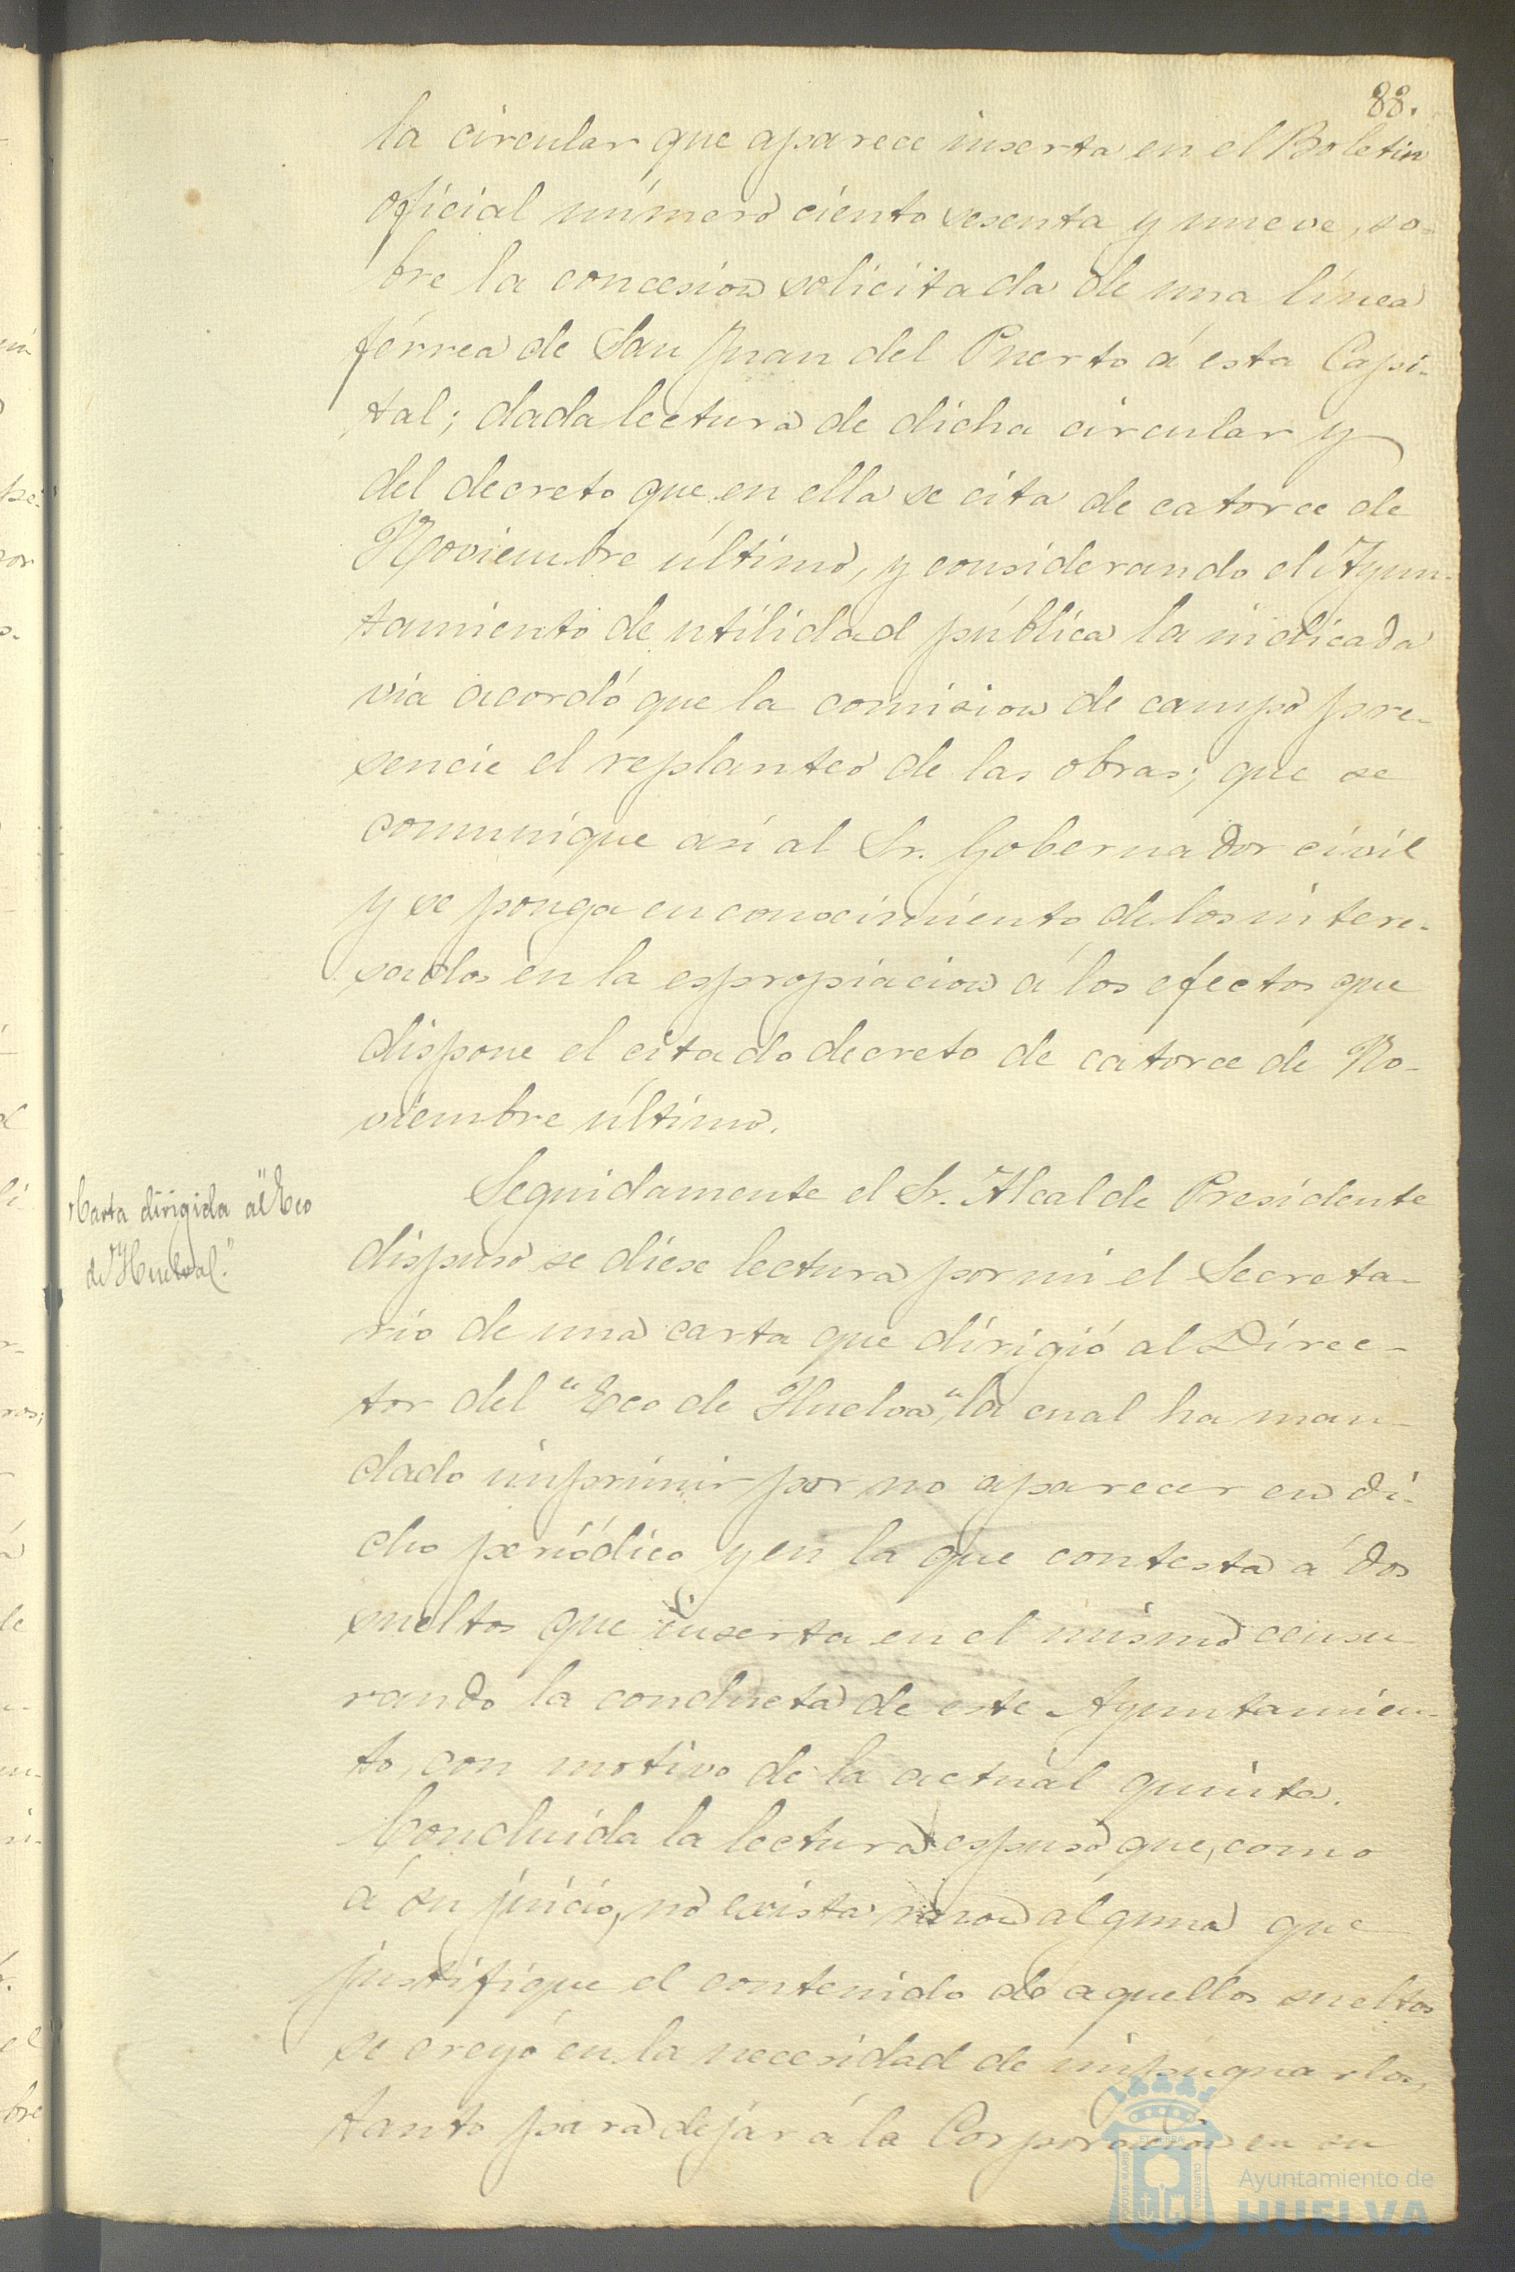 88.
la circular que aparece inserta en el Boletin
oficial número ciento sesenta y nueve, so-
bre la concesion solicitada de una línea
férrea de San Juan del Puerto á esta Capi-
tal; dada lectura de dicha circular y
del decreto que en ella se cita de catorce de
Noviembre último, y considerando el Ayun-
tamiento de utilidad pública la indicada
via acordó que la comision de campo pre-
sencie el replanteo de las obras; que se
comunique asi al Sr. Gobernador civil
y se ponga en conocimiento de los intere-
sados en la espropiacion á los efectos que
dispone el citado decreto de catorce de No-
viembre último.
Carta dirigida al "Eco
de Huelva".
Seguidamente el Sr. Alcalde Presidente
dispuso se diese lectura por mi el Secreta-
rio de una carta que dirigió al Direc-
tor del "Eco de Huelva", la cual ha man-
dado imprimir por no aparecer en di-
cho periódico y en la que contesta á dos
sueltos que inserta en el mismo censu-
rando la conducta de este Ayuntamien-
to, con motivo de la actual quinta.
Concluida la lectura espuso que, como
á su juicio, no exista razon alguna que
justifique el contenido de aquellos sueltos
se creyó en la necesidad de impugnarlos,
tanto para dejar á la Corporacion en su
Ayuntamiento de
HUELVA